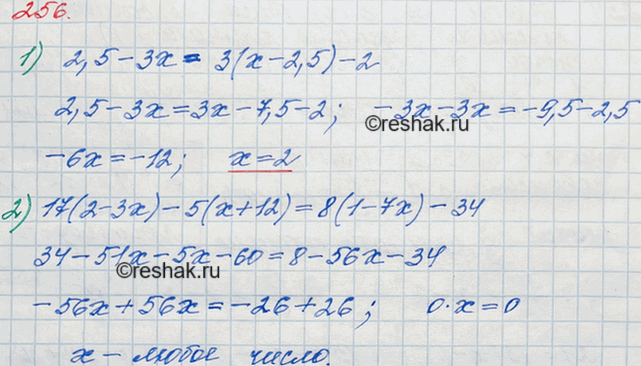 256.
1) 2,5-3x = 3(x-2,5)-2
2,5-3x=3x-7,5-2; -3x-3x=-9,5-2,5
©reshak.ru
-6x=-12; x=2
2) 17(2-3x)-5(x+12)=8(1-7x)-34
34-51x-5x-60=8-56x-34
©reshak.ru
-56x+56x=-26+26; 0·x=0
x - любое число.